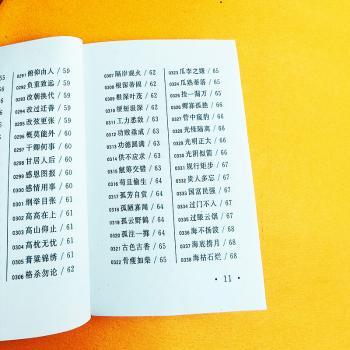 0291 俯仰由人 / 59
0292 负重致远 / 59
0293 改朝换代 / 59
0294 改过迁善 / 59
0295 改弦更张 / 59
0296 概莫能外 / 59
0297 干卿何事 / 60
0298 甘居人后 / 60
0299 感恩图报 / 60
0300 感情用事 / 60
0301 纲举目张 / 60
0302 高高在上 / 61
0303 高山仰止 / 61
0304 高枕无忧 / 61
0305 膏粱锦绣 / 61
0306 格杀勿论 / 62
0307 隔岸观火 / 62
0308 根深蒂固 / 62
0309 根深叶茂 / 62
0310 绠短汲深 / 62
0311 工力悉敌 / 63
0312 功败垂成 / 63
0313 功德圆满 / 63
0314 供不应求 / 63
0315 觥筹交错 / 63
0316 苟且偷生 / 64
0317 孤芳自赏 / 64
0318 孤陋寡闻 / 64
0319 孤云野鹤 / 64
0320 孤注一掷 / 64
0321 古色古香 / 64
0322 骨瘦如柴 / 65
0323 瓜李之嫌 / 65
0324 瓜熟蒂落 / 65
0325 挂一漏万 / 65
0326 鳏寡孤独 / 65
0327 管中窥豹 / 66
0328 光怪陆离 / 66
0329 光明正大 / 66
0330 光阴似箭 / 66
0331 规行矩步 / 67
0332 贵人多忘 / 67
0333 国富民强 / 67
0334 过门不入 / 67
0335 过眼云烟 / 67
0336 海不扬波 / 68
0337 海底捞月 / 68
0338 海枯石烂 / 68
· 11 ·